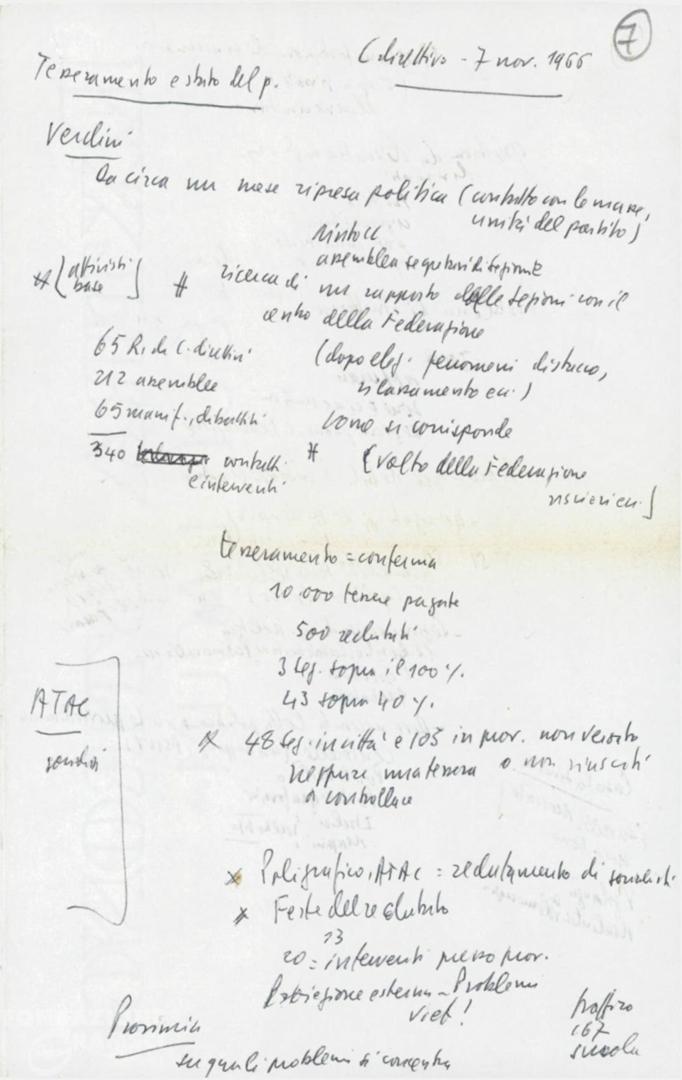 7
Tesseramento e stato del p.
C. direttivo - 7 nov. 1966
Verdini
da circa un mese ripresa politica (contatto con le masse,
unità del partito)
assemblea segretari di sezione
* [attivisti
base]
# ricerca di un rapporto delle sezioni con il
centro della Federazione
65 R. di C. direttivi
(dopo elez. fenomeni distacco,
rilassamento ecc.)
212 assemblee
65 manif., dibattiti
come si corrisponde
340 contatti
e interventi
# [volto della Federazione
tesseramento = conferma
10.000 tessere pagate
500 reclutati
3 sez. sopra il 100%
43 sopra 40%
ATAC
* 48 sez. in città e 103 in prov. non versato
neppure una tessera o non riusciti
a controllare
* Poligrafico, ATAC = reclutamento di socialisti
* Feste del reclutato
13
20 = interventi presso prov.
Proiezione esterna - Problemi
Viet!
traffico
167
scuola
Provincia
su quali problemi si concentra